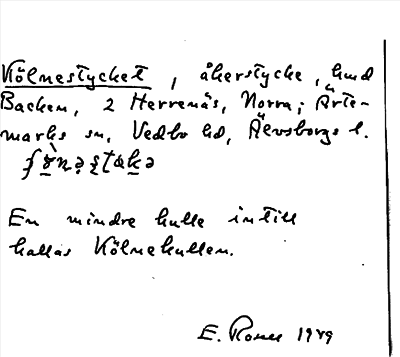 Kölnestycket, åkerstycke, hmd
Backen, 2 Herrenäs, Norra; Ärte-
marks sn, Vedbo hd, Älvsborgs l.
En mindre kulle intill
kallas Kölnekullen.
E. 1949